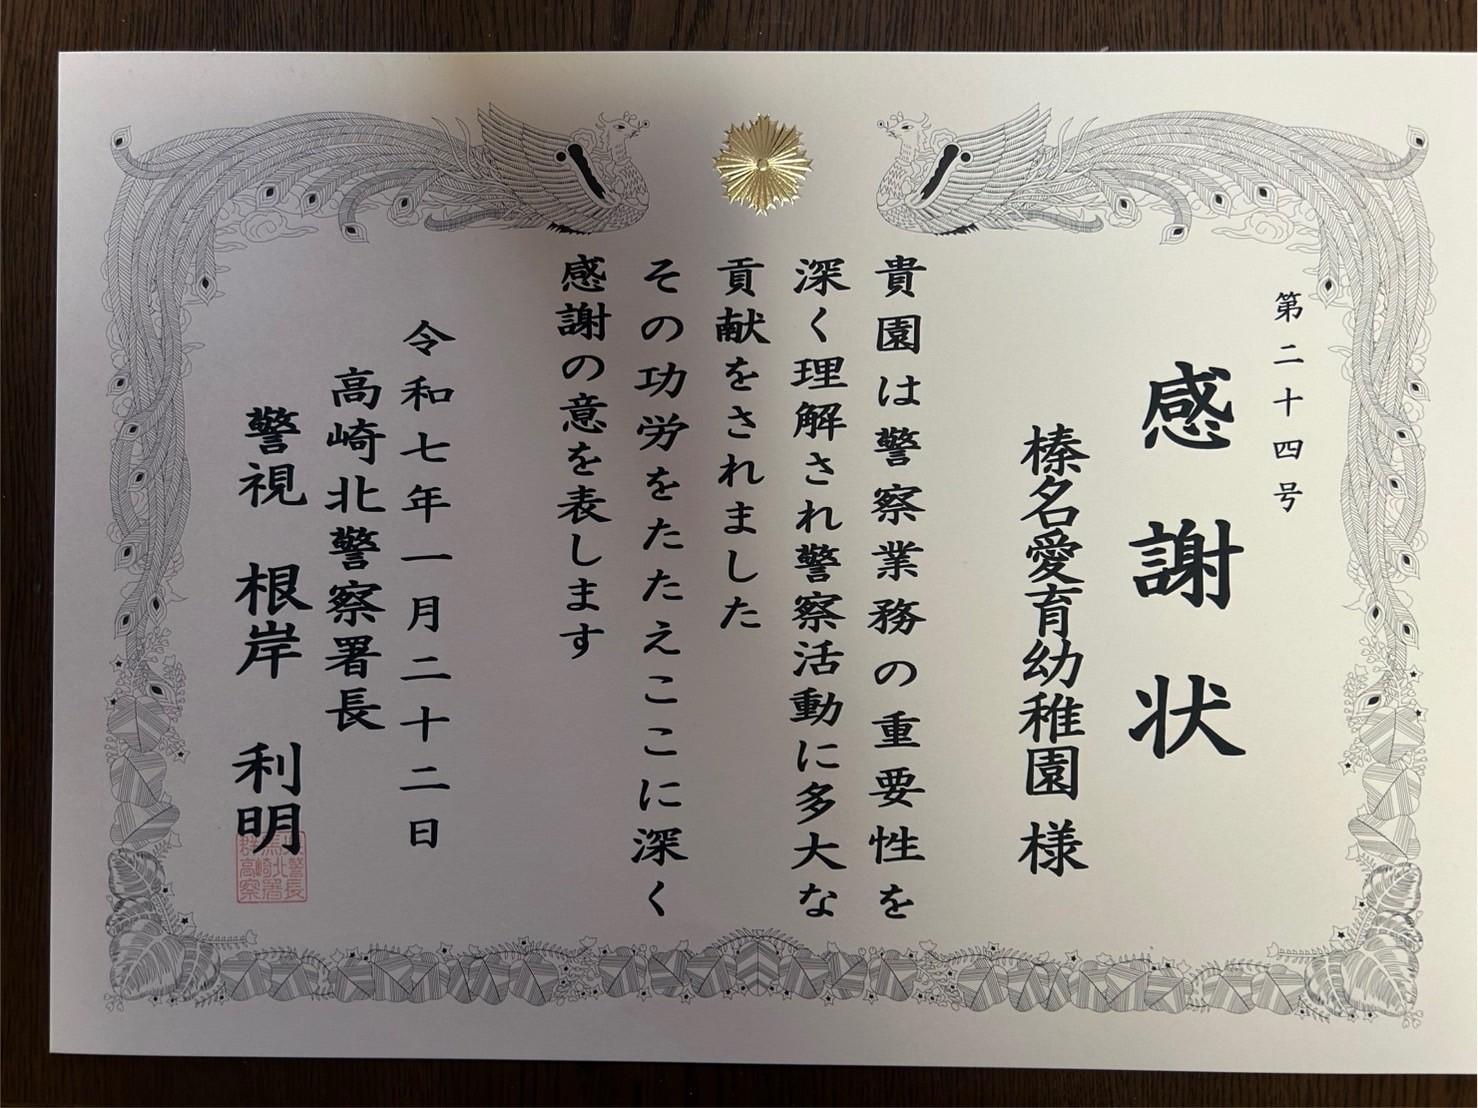 第二十四号
感謝状
榛名愛育幼稚園 様
貴園は警察業務の重要性を
深く理解され警察活動に多大な
貢献をされました
その功労をたたえここに深く
感謝の意を表します
令和七年一月二十二日
高崎北警察署長
警視 根岸 利明